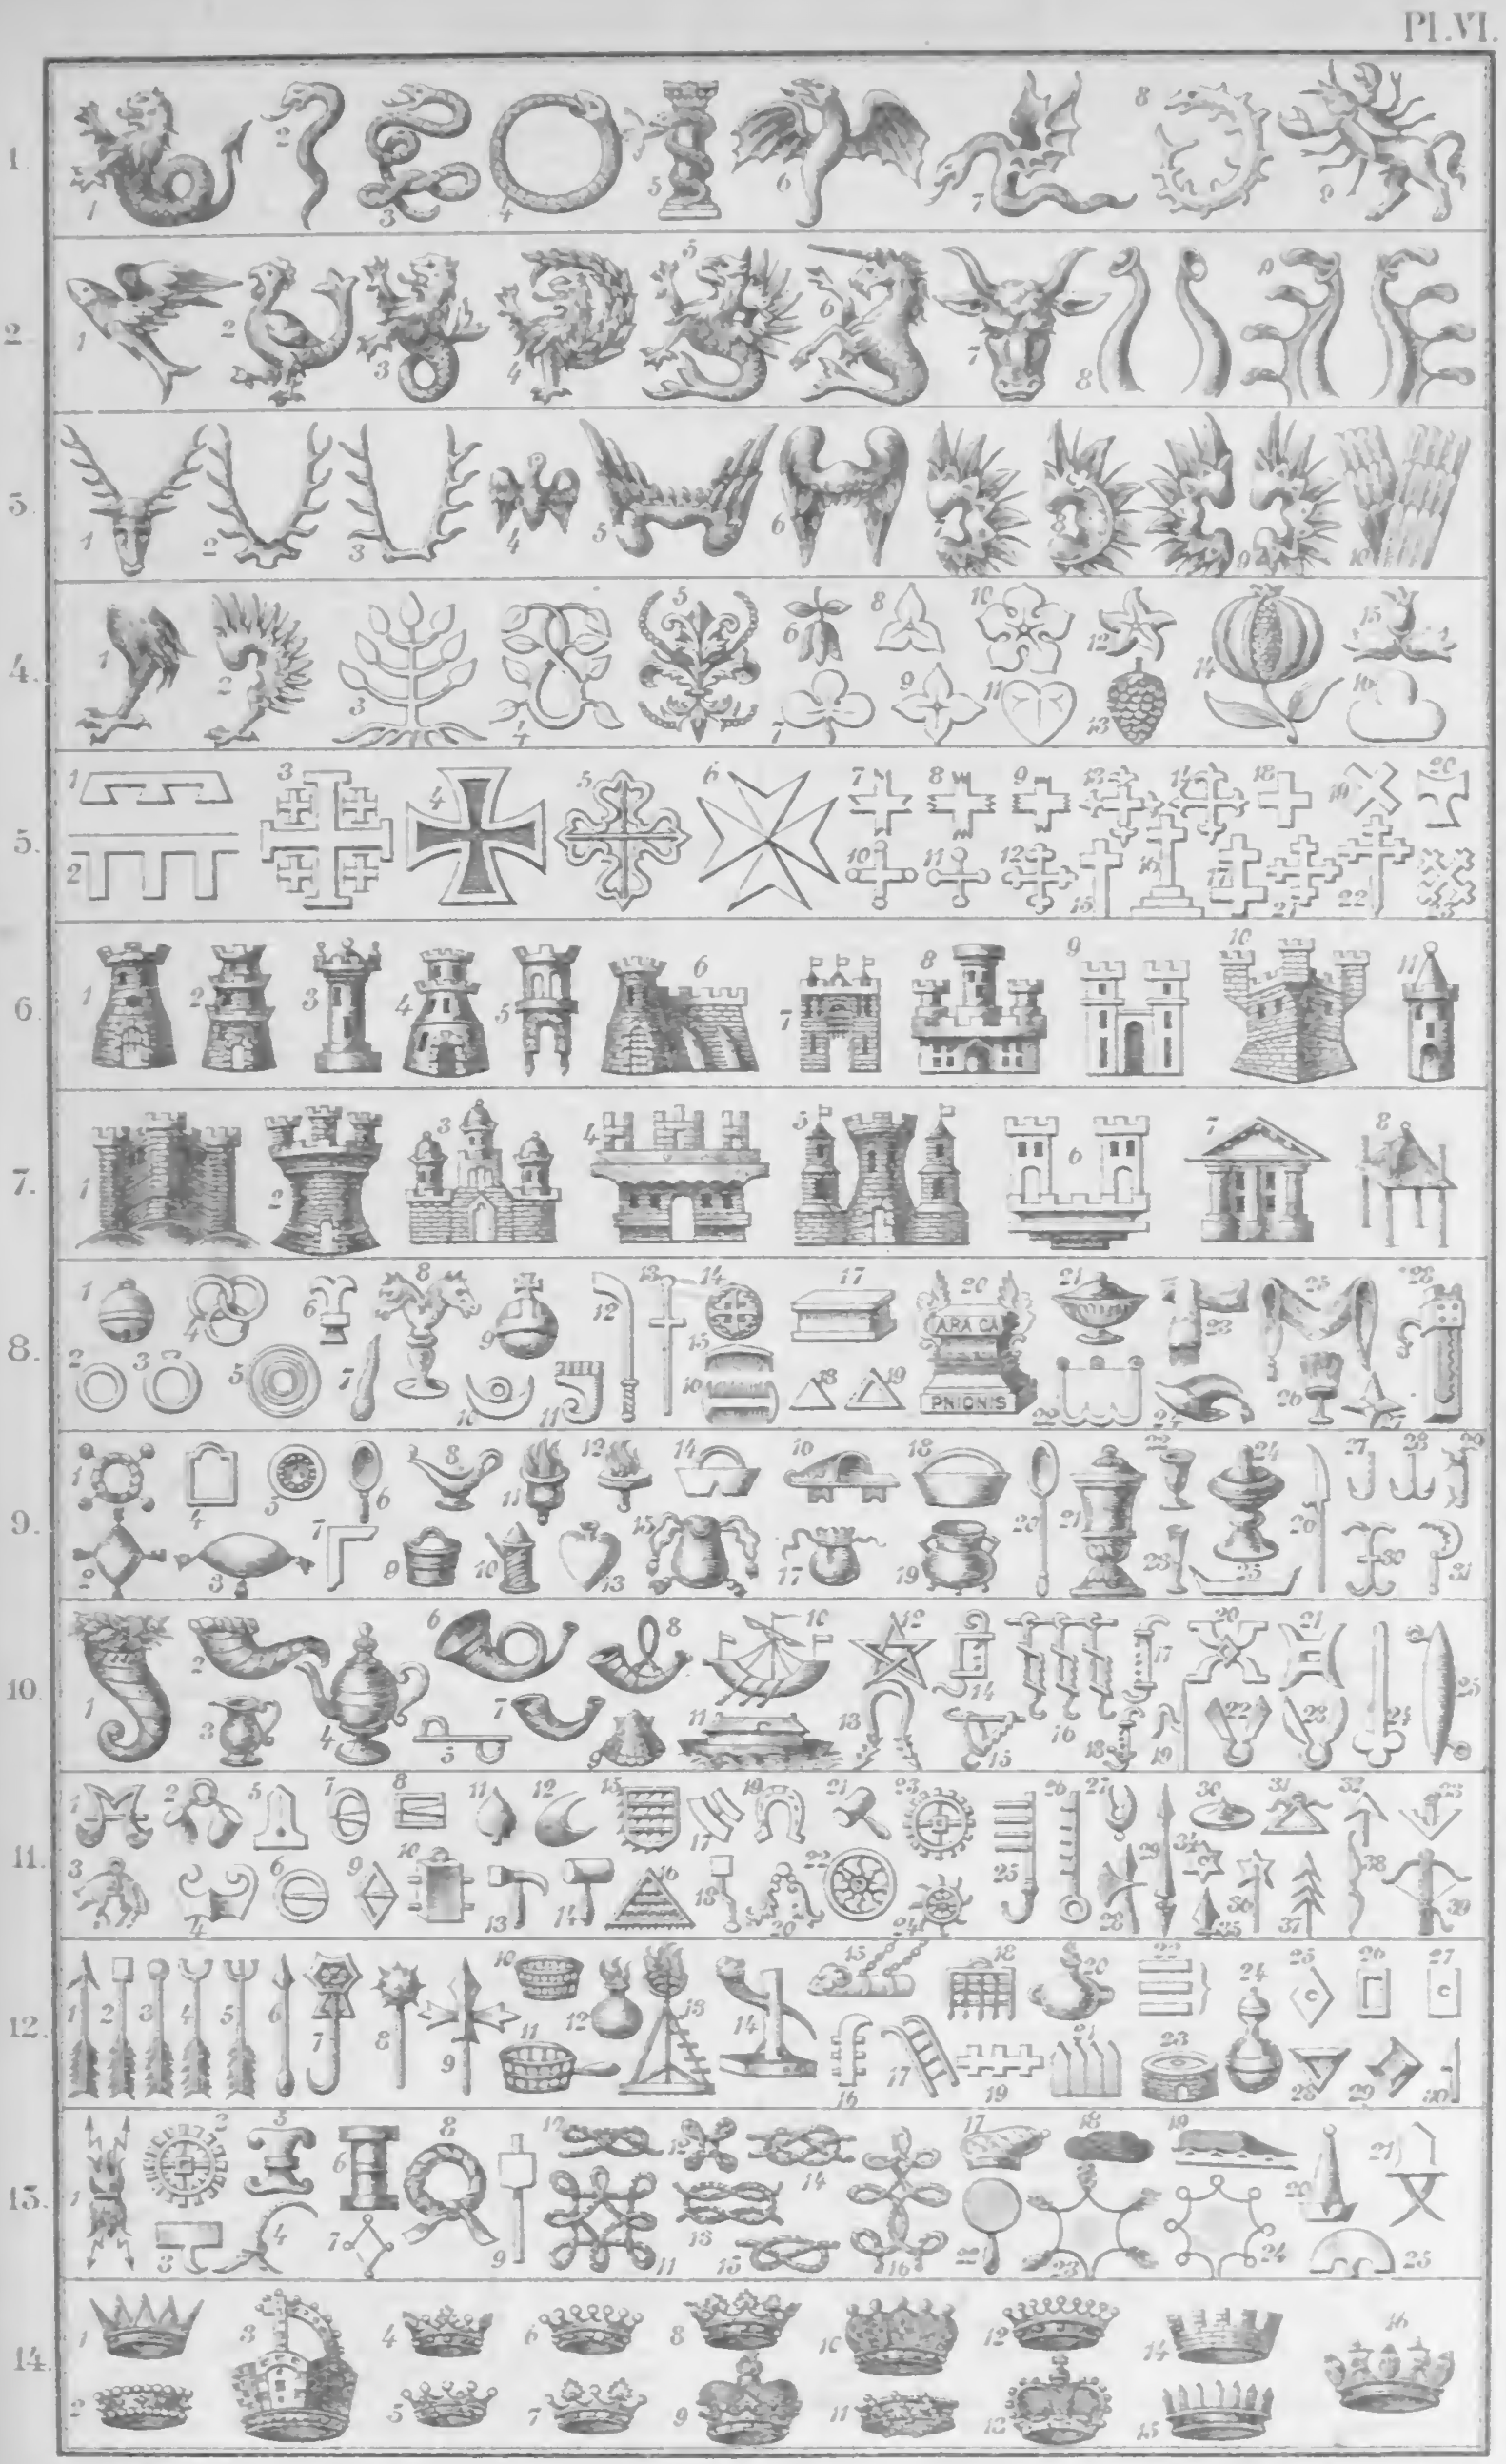 Pl.VI.
1. 1 2 3 4 5 6 7 8 9
2. 1 2 3 4 5 6 7 8 9
3. 1 2 3 4 5 6 7 8 9 10
4. 1 2 3 4 5 6 7 8 9 10 11 12 13 14 15 16
5. 1 2 3 4 5 6 7 8 9 10 11 12 13 14 15 16 17 18 19 20 21 22 23
6. 1 2 3 4 5 6 7 8 9 10 11
7. 1 2 3 4 5 6 7 8
8. 1 2 3 4 5 6 7 8 9 10 11 12 13 14 15 16 17 18 19 20 21 22 23 24 25 26 28
ARA CA
PNIONIS
9. 1 2 3 4 5 6 7 8 9 10 11 12 13 14 15 16 17 18 19 20 21 22 23 24 25 26 27 28 29 30 31
10. 1 2 3 4 5 6 7 8 9 10 11 12 13 14 15 16 17 18 19 20 21 22 23 24 25
11. 1 2 3 4 5 6 7 8 9 10 11 12 13 14 15 16 17 18 19 20 21 22 23 24 25 26 27 28 29 30 31 32 33 34 35 36 37 38 39
12. 1 2 3 4 5 6 7 8 9 10 11 12 13 14 15 16 17 18 19 20 21 22 23 24 25 26 27 28 29 30
13. 1 2 3 3 4 5 6 7 8 9 10 11 12 13 14 15 16 17 18 19 20 21 22 23 24 25
14. 1 2 3 4 5 6 7 8 9 10 11 12 13 14 15 16